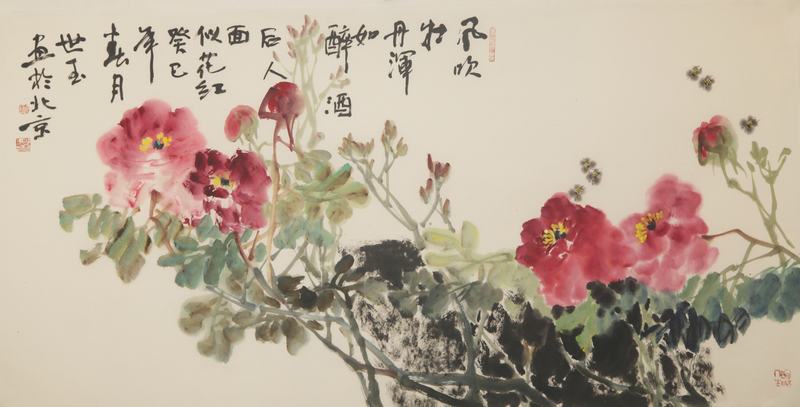 风吹
牡
丹浑
如
醉酒
后人
面
似花红
癸巳
年
春月
世玉
画於北京